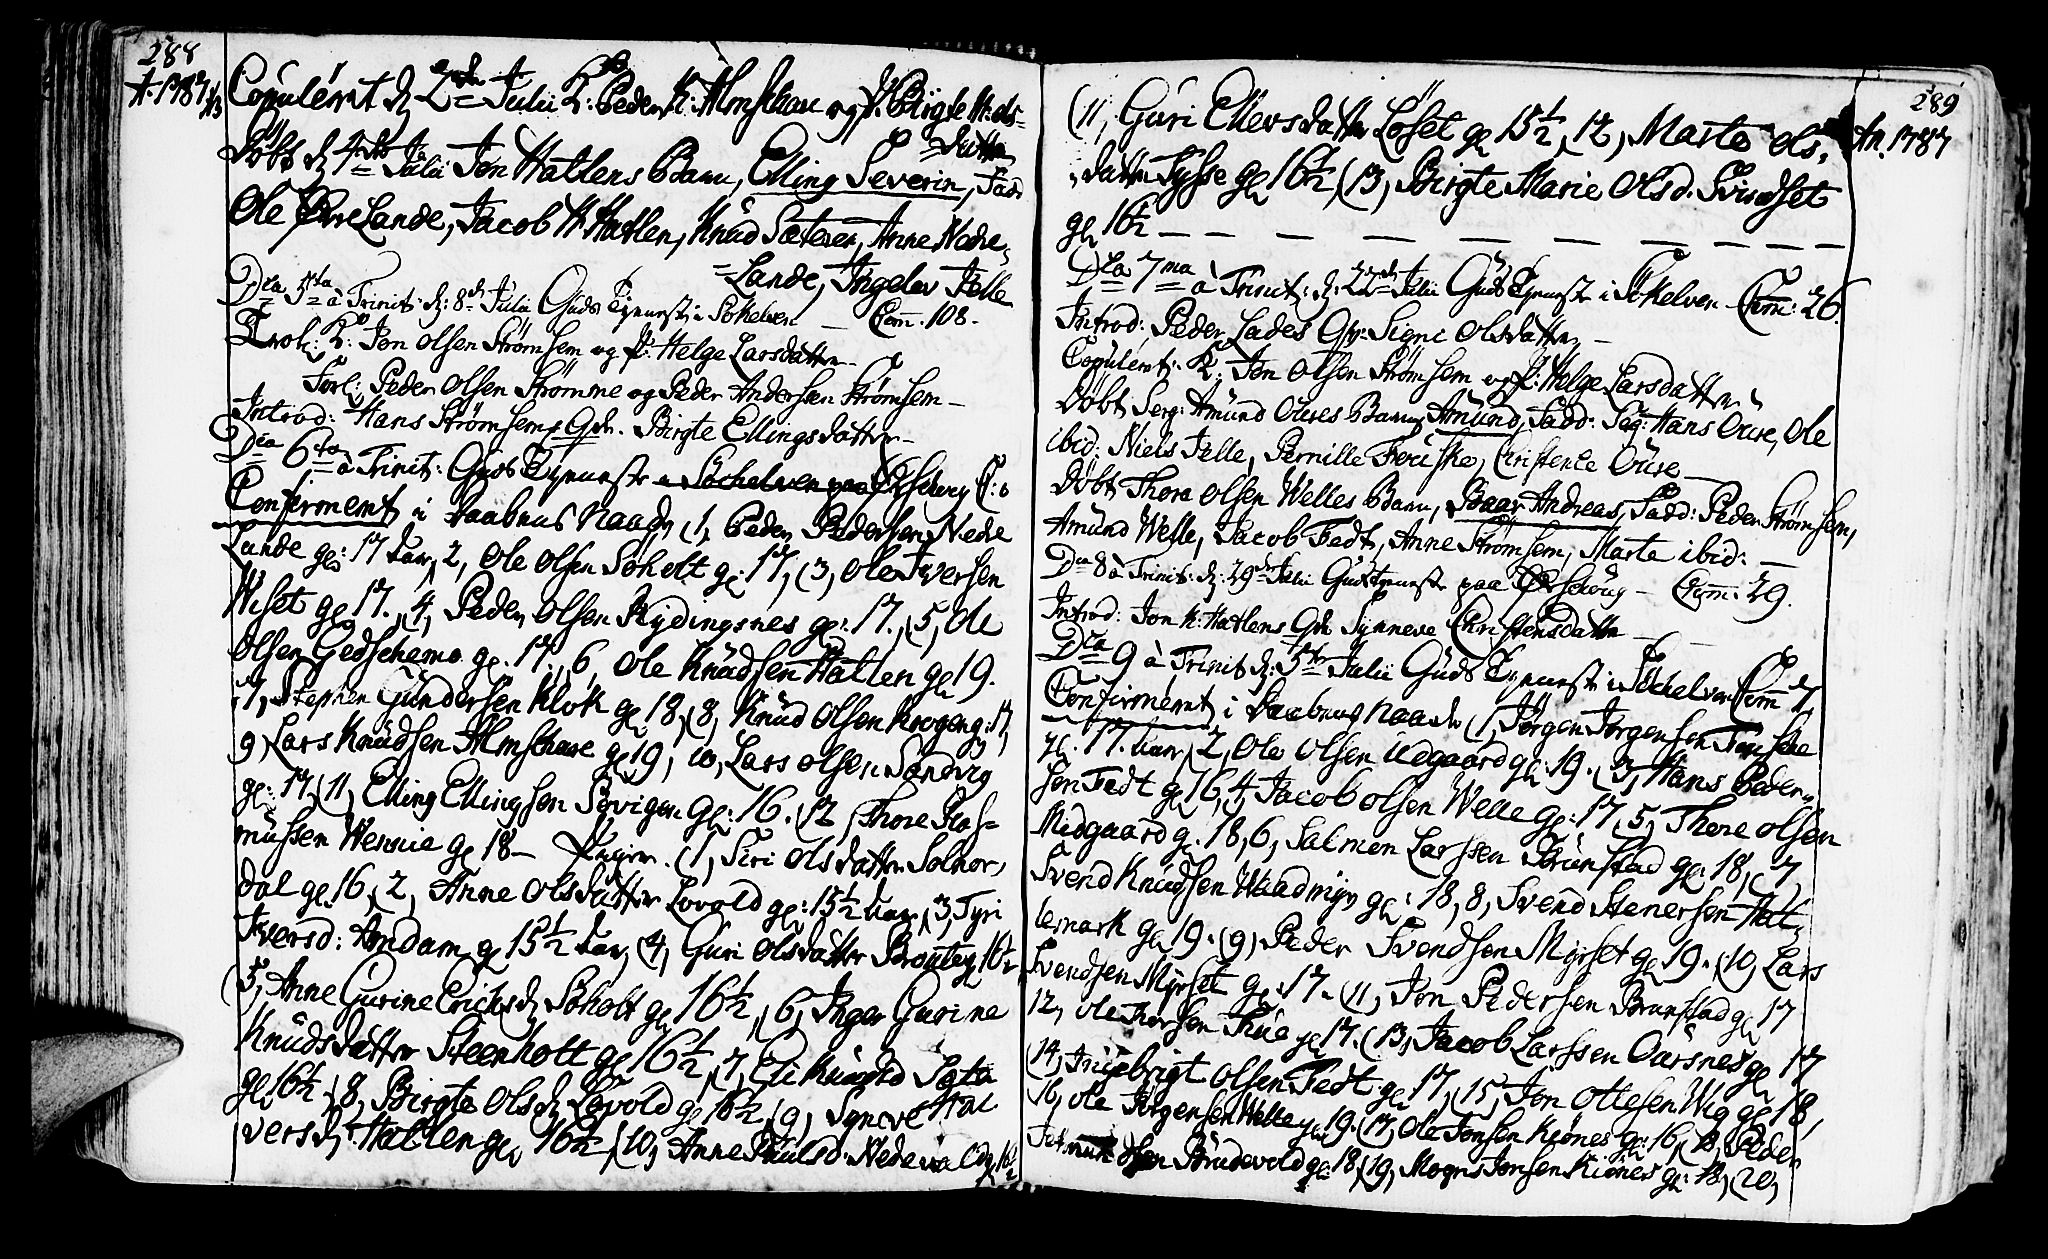 288
A. 1787
Copulerit d 2den Julii K: Peder K: Almschau og P. Birgte M: ols=
=datter
Döbt d 4de Julii Jon Hatlens Barn, Elling Severin, Fadd
Ole Øvre Lande, Jacob K Hatlen, Knud Sæteren, Anne Nedre
=Lande, Ingelev Felle
Dca 5ta à Trinit: d: 8de Julii Guds Tieneste i Sökelven — Com. 108.
Trol: K: Jon Olsen Strömsem og P: Helge Larsdatter
Forl: Peder Olsen Strömme og Peder Andersen Strömsem —
Introd: Hans Strömsems Qv. Birgte Ellingsdatter —
Dca 6ta à Trinit: Guds Tieneste
Confirmerit i Daabens Naade (1, Peder Pedersen Nedre
Lande gl: 17 aar, 2, Ole Olsen Soholt gl: 17, (3, Ole Iversen
Wiset gl 17. (4, Peder Olsen Rydingsnes gl: 17. (5, Ole
Olsen Gedschemo gl. 17. 6, Ole Knudsen Hatlen gl 19.
7, Stephen Gundersen Klok gl 18, (8, Knud Olsen Krogeng: 17,
9, Lars Knudsen Almschaae gl 19, 10, Lars Olsen Sandvig
gl: 17. (11, Elling Ellingsen Sovigen gl: 16. (12, Thore Ras=
mussen Wennie gl 18 — Piger. (1, Siri Olsdatter Solnor,
dal gl 16, 2, Anne Olsdatter Lovold gl: 15½ aar, (3, Tyri
Iversd: Amdam gl 15½ aar, (4, Guri Olsdatter Brauteg 16½
5, Anne Gurine Erichsd Soholt gl 16½, (6, Inger Gurine
Knudsdatter Steenholt gl 16½, (7, Eli Knudsd Sæta
gl 16½ (8, Birgte Olsd Lovold gl 16½ (9, Syneve Hal
versd: Hatlen gl 16½ (10, Anne Paulsd. Nedrevold 16½
289
An. 1787
(11, Guri Ellevsdatter Löset gl 15½, 12, Marte Ols,
datter Tysse gl 16½, (13, Birgte Marie Olsd. Svindset
gl 16½ — — — — — — — —
Dca 7ma à Trinit: d: 22de Julii Guds Tieneste i Sökelven — Com: 26.
Introd: Peder Lades Qv: Signe Olsdatter —
Copulerit: K: Jon Olsen Strömsem og P: Helge Larsdatter
Döbt Serg: Amund Ouses Barn, Amund, Fadd: Serg: Hans Ouse, Ole
ibid: Niels Felle, Pernille Fauske, Christence Ouse —
Döbt Thore Olsen Welles Barn, Baar Andreas, Fadd: Peder Strömsem,
Amund Welle, Jacob Tedt, Anne Strömsem, Marte ibid: —
Dca 8 à Trinit: d: 29de Julii Gudstieneste paa Örschoug — Com: 29.
Introd: Jon K: Hatlens Qv Synneve Christensdatter —
Dca 9 à Trinit d: 5te Julii Guds Tieneste i Söchelven Com
Confirmerit i Daabens Naade (1, Jörgen Jörgensen Fauske
gl. 17. aar, 2, Ole Olsen Uigaard gl: 19. (3, Hans Peder=
sen Tedt gl 16, 4, Jacob Olsen Welle gl: 17, 5, Thore Olsen
Midgaard gl. 18, 6, Salmon Larssen Brunstad gl: 18, 7,
Svend Knudsen Waadmyr gl: 18, 8, Svend Stenersen Hatt,
lemark gl 19. (9, Peder Svendsen Myrset gl 19. (10, Lars
Svendsen Myrset gl: 17. (11, Jon Pedersen Brunstad gl 17
12, Ole Iversen Thue gl 17. (13, Jacob Larssen Aarsnes gl 17
(14, Ingebrigt Olsen Tedt gl 17, (15, Jon Ottesen Wig gl 18,
16, Ole Jörgensen Welle gl 19. (17, Ole Jonsen Kiönes gl: 16, 18, Peder
Brudevold gl 18, (19, Mogns Jonsen Kiönes gl: 18, (20,